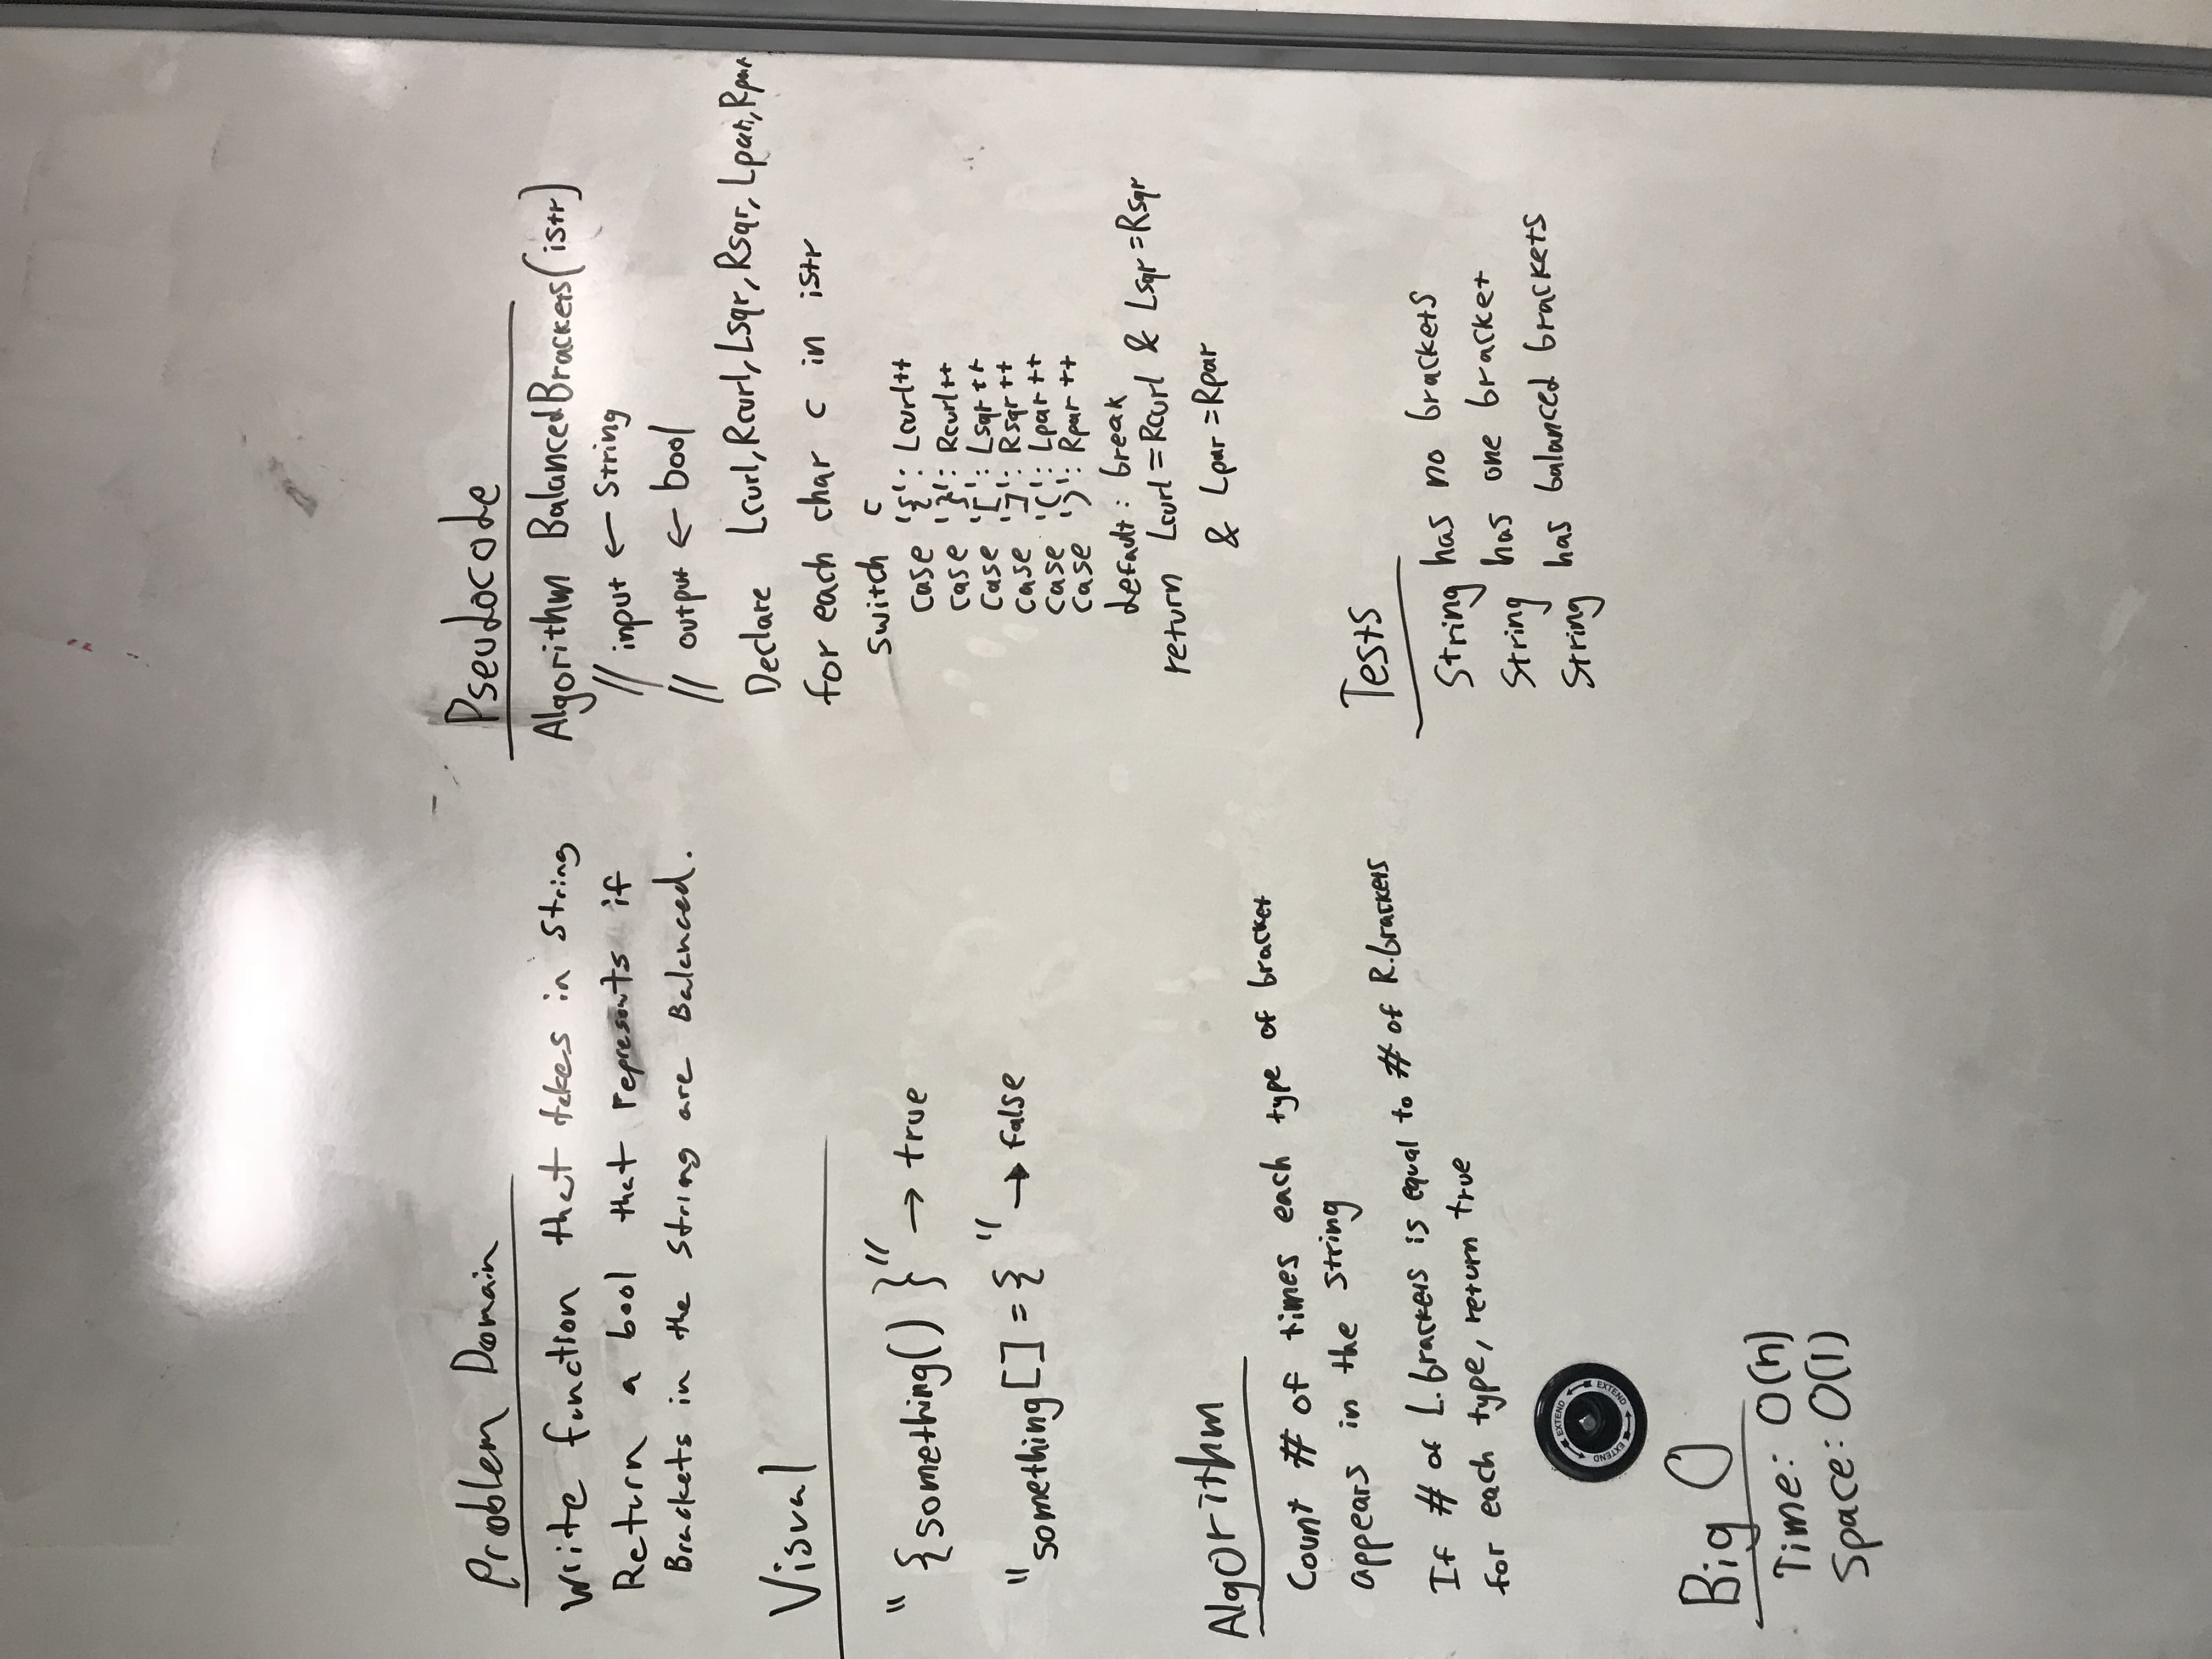 Problem Domain
Write function that takes in String
Return a bool that represents if
Brackets in the String are Balanced.
Visual
"{something()}" → true
"something[] = { " → false
Algorithm
Count # of times each type of bracket
appears in the string
If # of L. brackets is equal to # of R. brackets
for each type, return true
EXTEND EXTEND EXTEND
Big O
Time: O(n)
Space: O(1)
Pseudocode
Algorithm BalancedBrackets(istr)
// input ← String
// output ← bool
Declare Lcurl, Rcurl, Lsqr, Rsqr, Lpar, Rpar
for each char c in istr
switch c
case '{': Lcurl++
case '}': Rcurl++
case '[': Lsqr++
case ']': Rsqr++
case '(': Lpar++
case ')': Rpar++
default: break
return Lcurl = Rcurl & Lsqr = Rsqr
& Lpar = Rpar
Tests
String has no brackets
String has one bracket
String has balanced brackets